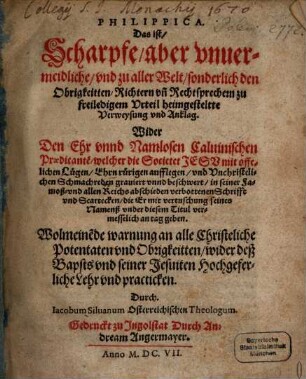 Collegij S. J. Monachij 1610
PHILIPPICA.
Das ist/
Scharpfe/ aber vnuer-
meidliche/ vnd zu aller Welt/ sonderlich den
Obrigkeitten/ Richtern vñ Rechtsprechern zu
freiledigem Vrteil heimgestellte
Verweysung vnd Anklag.
Wider
Den Ehr vnnd Namlosen Caluinischen
Prædicantẽ/ welcher die Societet IESV mit öffẽt-
lichen Lügen/ Ehrnrürigen aufflegen/ vnd Vnchristeli-
chen Schmachreden grauiert vnnd beschwert/ in seiner Fa-
moß vnd allen Reichs abschieden verbottenen Schrifft
vnd Scartecken/ die Er mit vertuschung seines
Namenß vnder diesem Titul ver-
messelich an tag geben.
Wolmeinẽde warnung an alle Christeliche
Potentaten vnd Obrigkeitten/ wider deß
Bapsts vnd seiner Jesuiten Hochgefer-
liche Lehr vnd practicken.
Durch.
Iacobum Siluanum Österreichischen Theologum.
Gedruckt zu Ingolstat Durch An-
dream Angermayer.
Anno M. DC. VII.
Bayerische
Staatsbibliothek
München